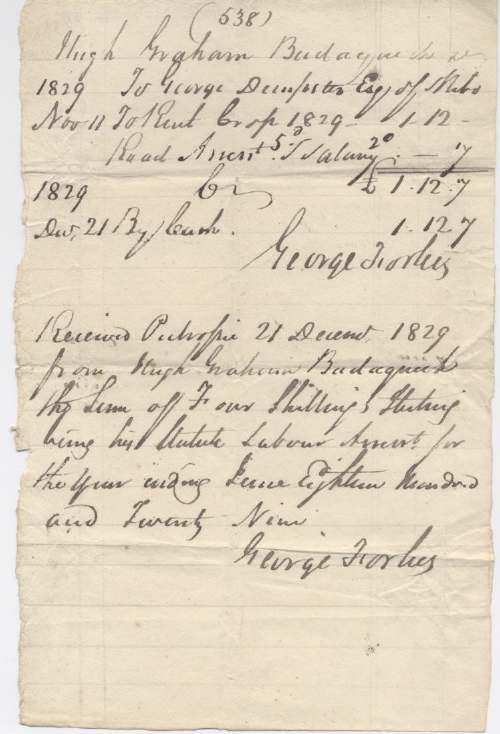 (538)
Hugh Graham Badaquish
1829 To George Dempster Esq. of Skibo
Nov 11 To Rent Crop 1829 - 1 - 12 -
Road Assest. 5d Salary 2d . - 7
1829 Cr £ 1 . 12 . 7
Dec. 21 By Cash . 1 . 12 7
George Forbes
Received Pulrossie 21 Decemr. 1829
from Hugh Graham Badaquish
the Sum off Four Shillings Sterling
being his Statute Labour Assest. for
the year ending June Eighteen Hundred
and Twenty Nine
George Forbes